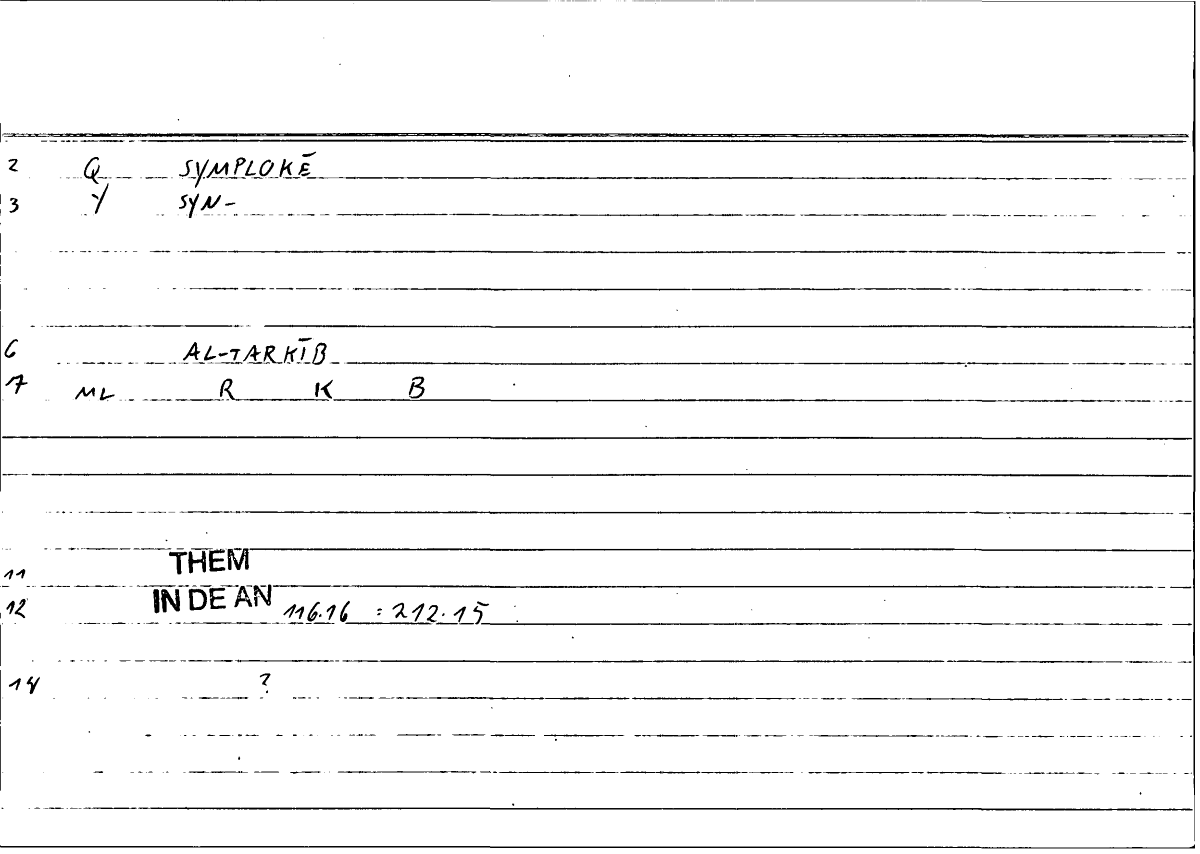 2 Q SYMPLOKĒ
3 Y SYN-
6 AL-TARKĪB
7 ML R K B
11 THEM
12 IN DE AN 116.16 = 212.15
14 ?